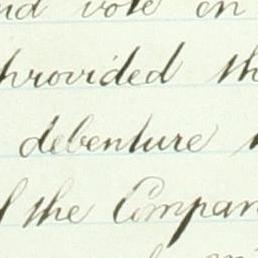 nd vote on
provided th
debenture
f the Compan